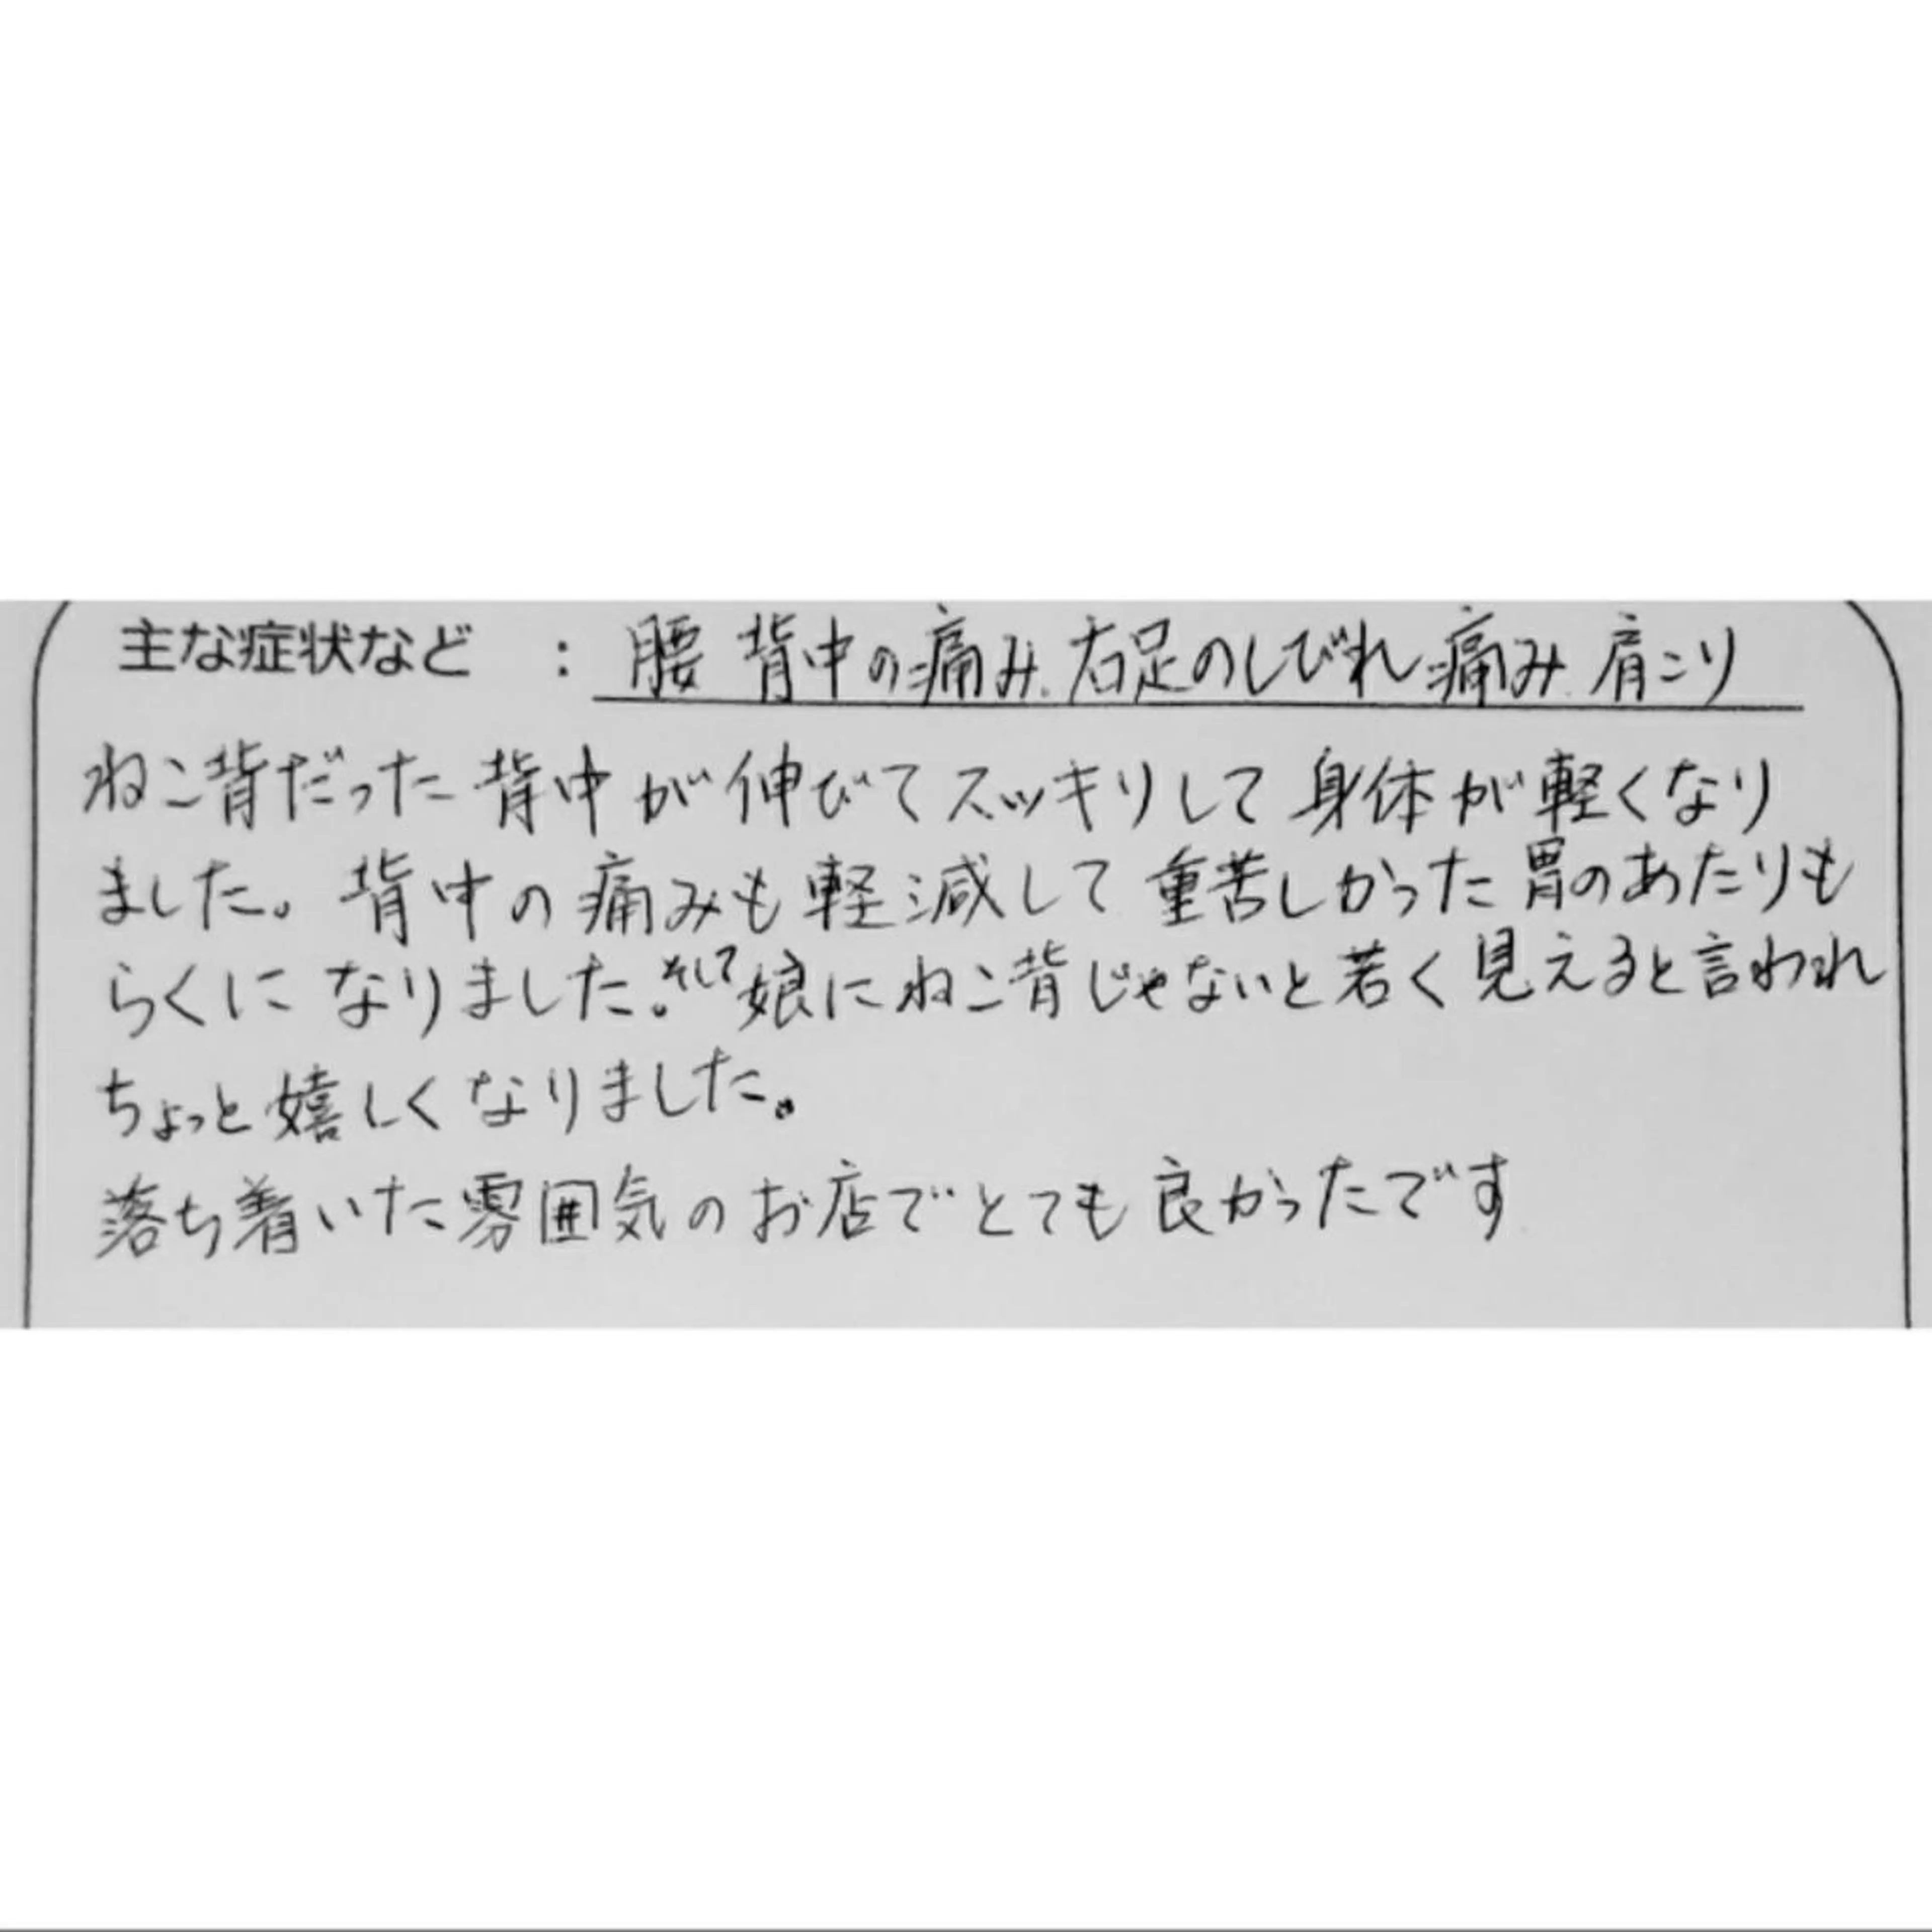 主な症状など : 腰 背中の痛み、右足のしびれ、痛み、肩こり
ねこ背だった背中が伸びてスッキリして身体が軽くなり
ました。背中の痛みも軽減して重苦しかった胃のあたりも
らくになりました。そして娘にねこ背じゃないと若く見えると言われ
ちょっと嬉しくなりました。
落ち着いた雰囲気のお店でとても良かったです